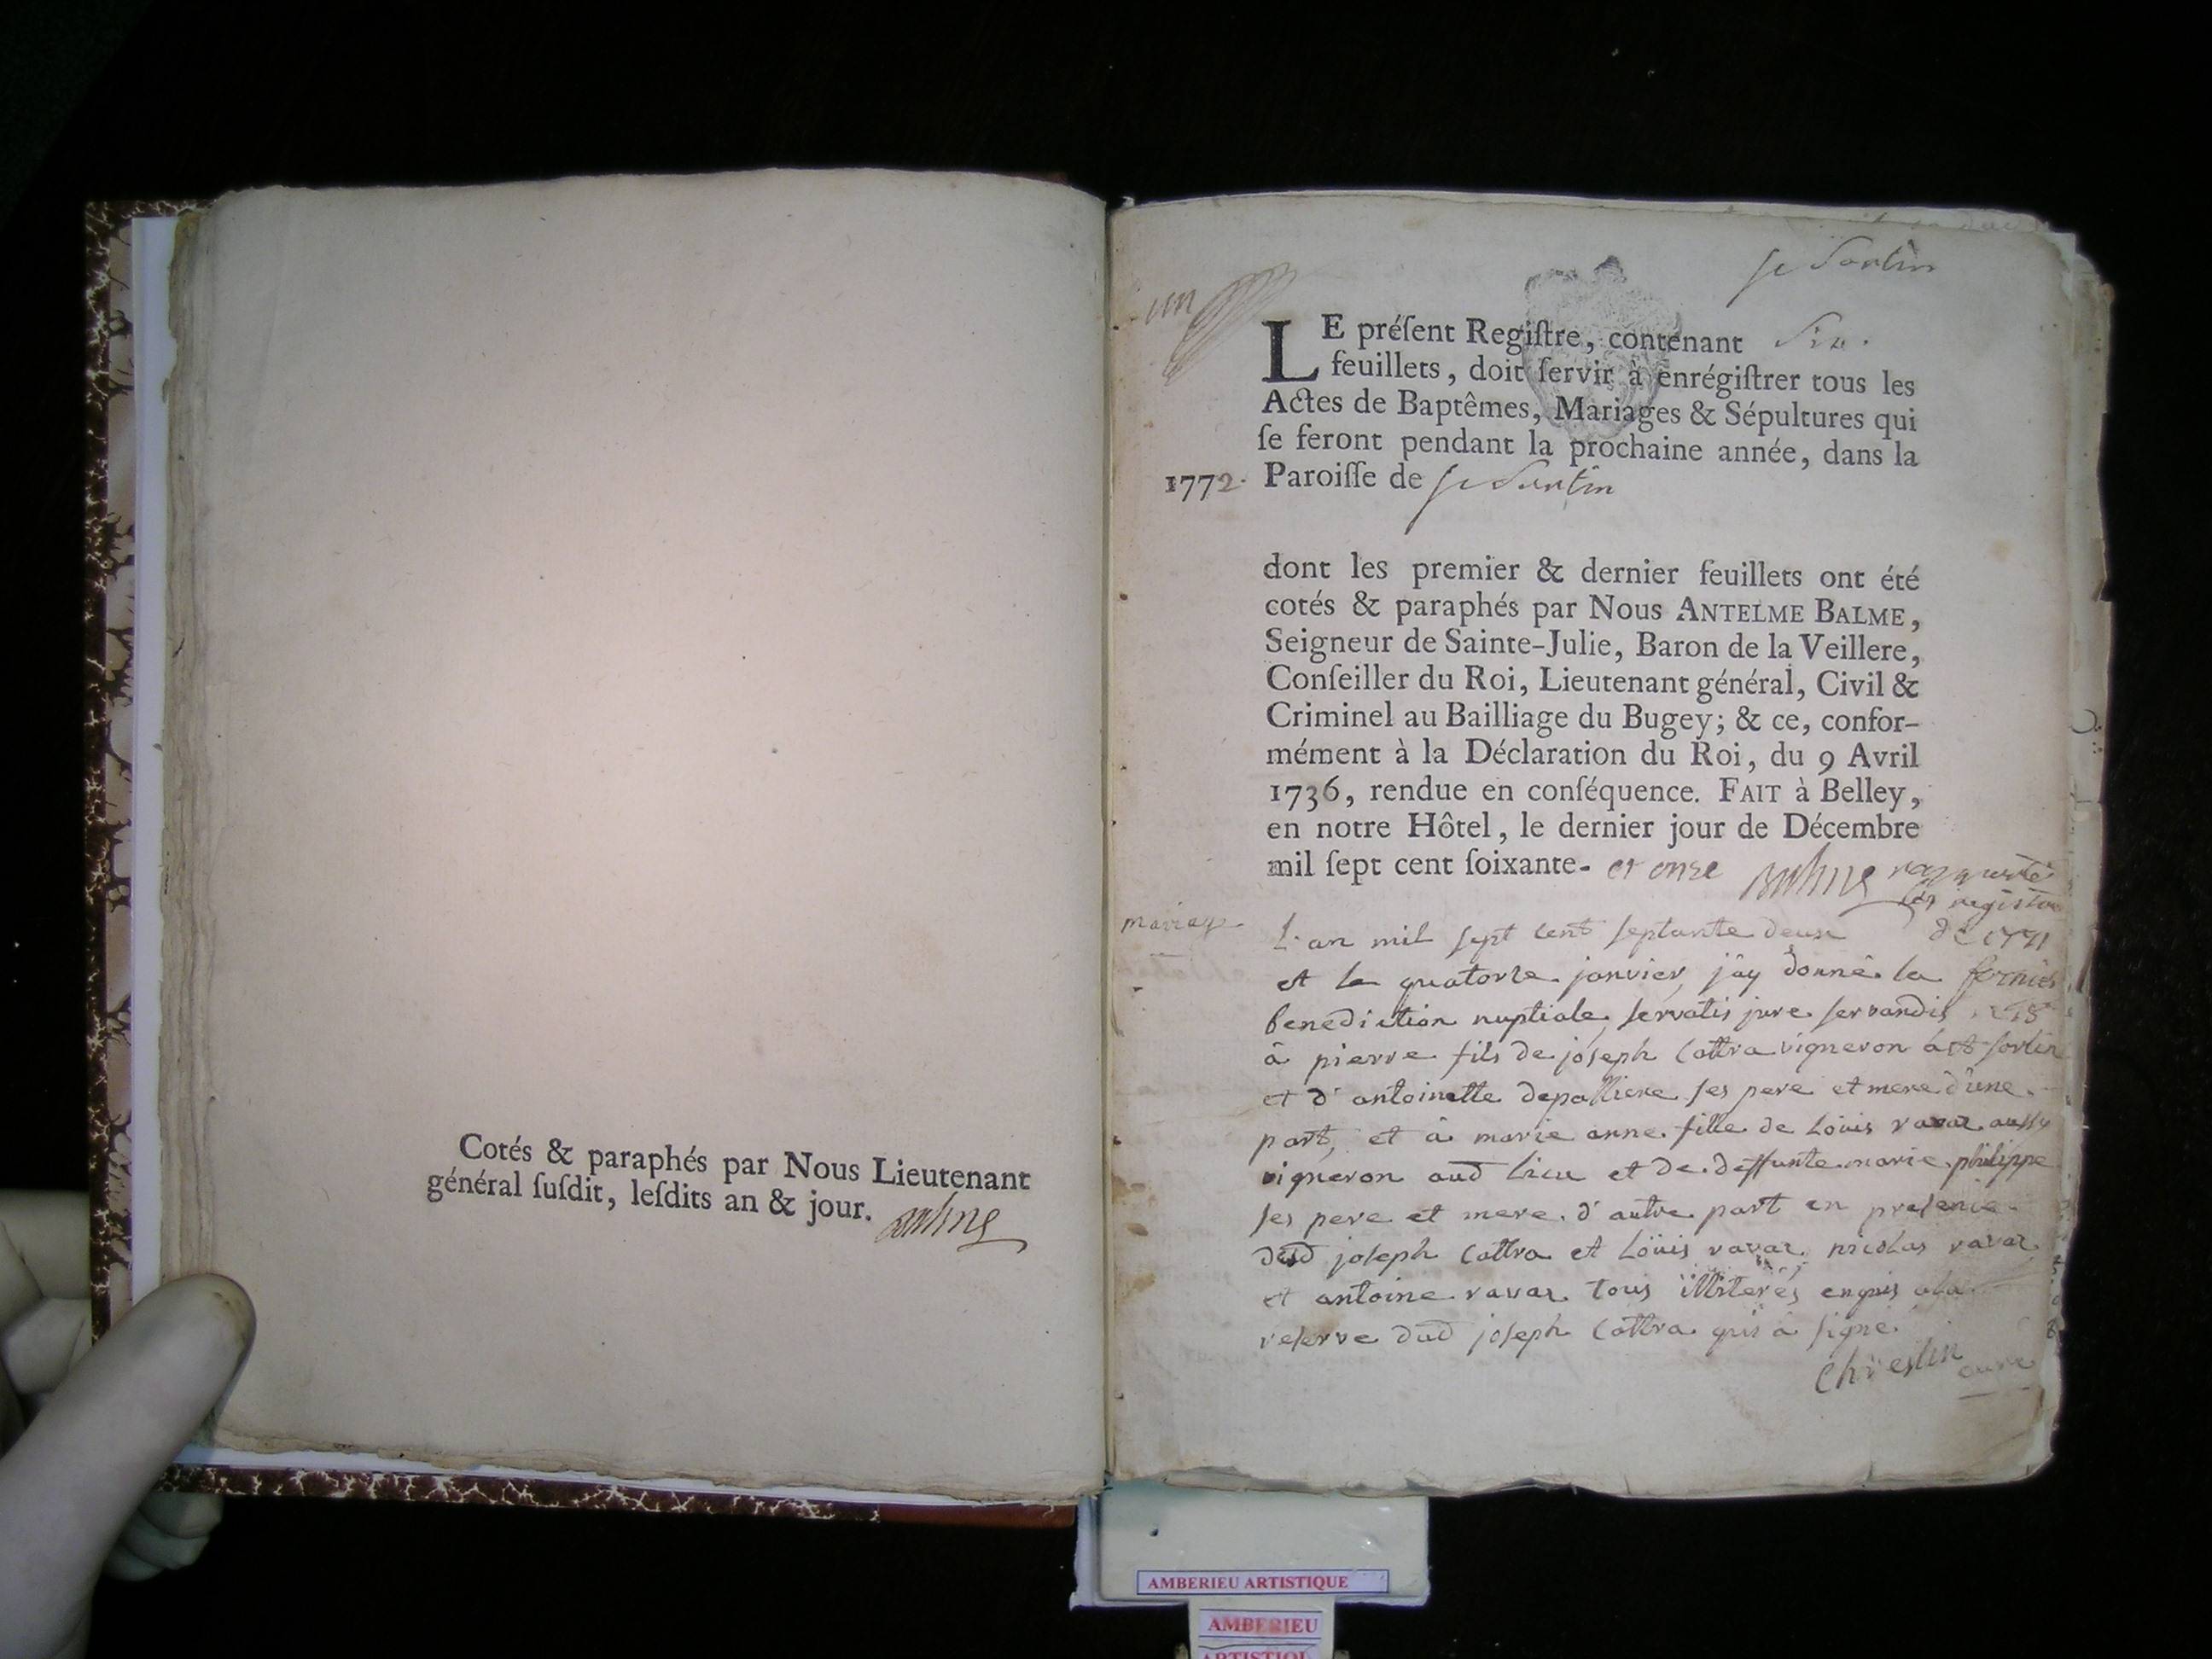 Cotés & paraphés par Nous Lieutenant
général ſuſdit, leſdits an & jour.
un
St Sorlin
LE préſent Regiſtre, contenant Six.
feuillets, doit ſervir à enrégiſtrer tous les
Actes de Baptêmes, Mariages & Sépultures qui
ſe feront pendant la prochaine année, dans la
1772. Paroiſſe de St Sorlin
dont les premier & dernier feuillets ont été
cotés & paraphés par Nous ANTELME BALME,
Seigneur de Sainte-Julie, Baron de la Veillere,
Conſeiller du Roi, Lieutenant général, Civil &
Criminel au Bailliage du Bugey; & ce, confor-
mément à la Déclaration du Roi, du 9 Avril
1736, rendue en conſéquence. FAIT à Belley,
en notre Hôtel, le dernier jour de Décembre
mil ſept cent ſoixante- et onze
les registres
de 1771
mariage
L'an mil sept cent septante deux
et le quatorze janvier, j'ay donné la
benediction nuptiale, servatis jure servandis
à pierre fils de joseph Cottra vigneron à st sorlin
et d'antoinette depalliere ses pere et mere d'une
part, et à marie anne fille de Loüis ravaz aussy
vigneron aud lieu et de deffunte marie philippe
ses pere et mere d'autre part en presence
dud joseph Cottra et Loüis ravaz, nicolas ravaz
et antoine ravaz tous illiterés enquis a la
reserve dud joseph Cottra qui a signé.
Chrestin curé
AMBERIEU ARTISTIQUE
AMBERIEU
ARTISTIQUE